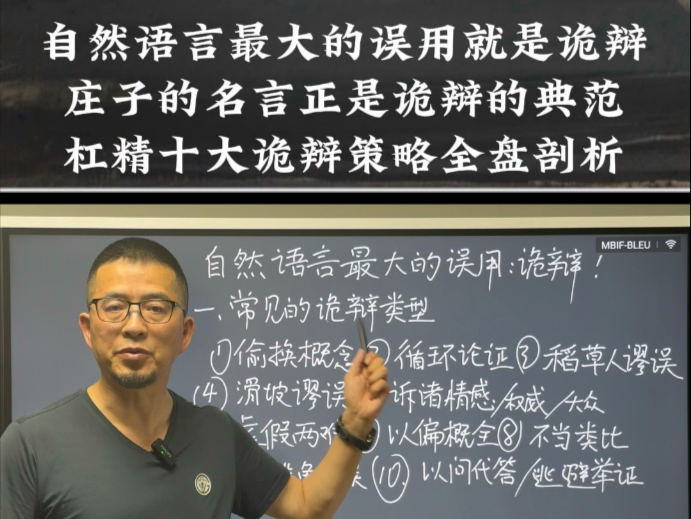 自然语言最大的误用就是诡辩
庄子的名言正是诡辩的典范
杠精十大诡辩策略全盘剖析
MBIF-BLEU
自然语言最大的误用:诡辩!
一、常见的诡辩类型
①偷换概念② 循环论证③稻草人谬误
(4) 滑坡谬误 诉诸情感/权威/大众
虚假两难 以偏概全⑧ 不当类比
⑩. 以问代答/逃避举证